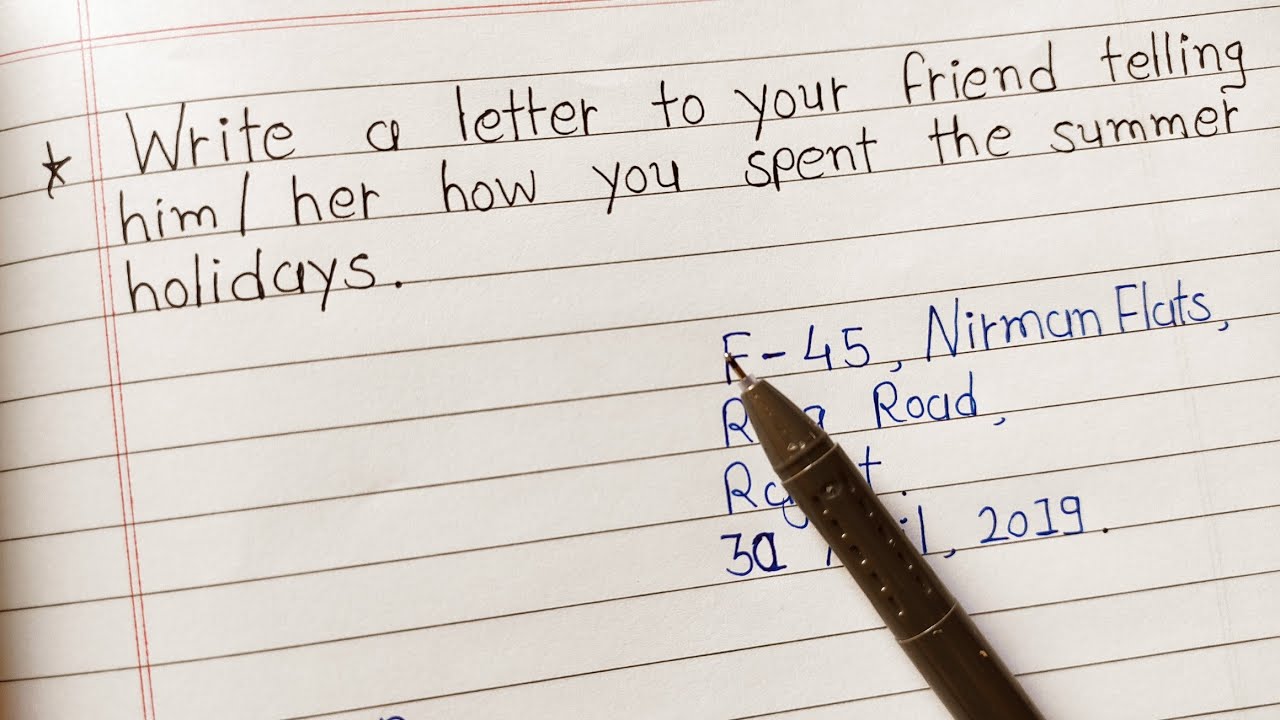 * Write a letter to your friend telling
him/her how you spent the summer
holidays.
F-45, Nirman Flats,
Road,
30 2019.